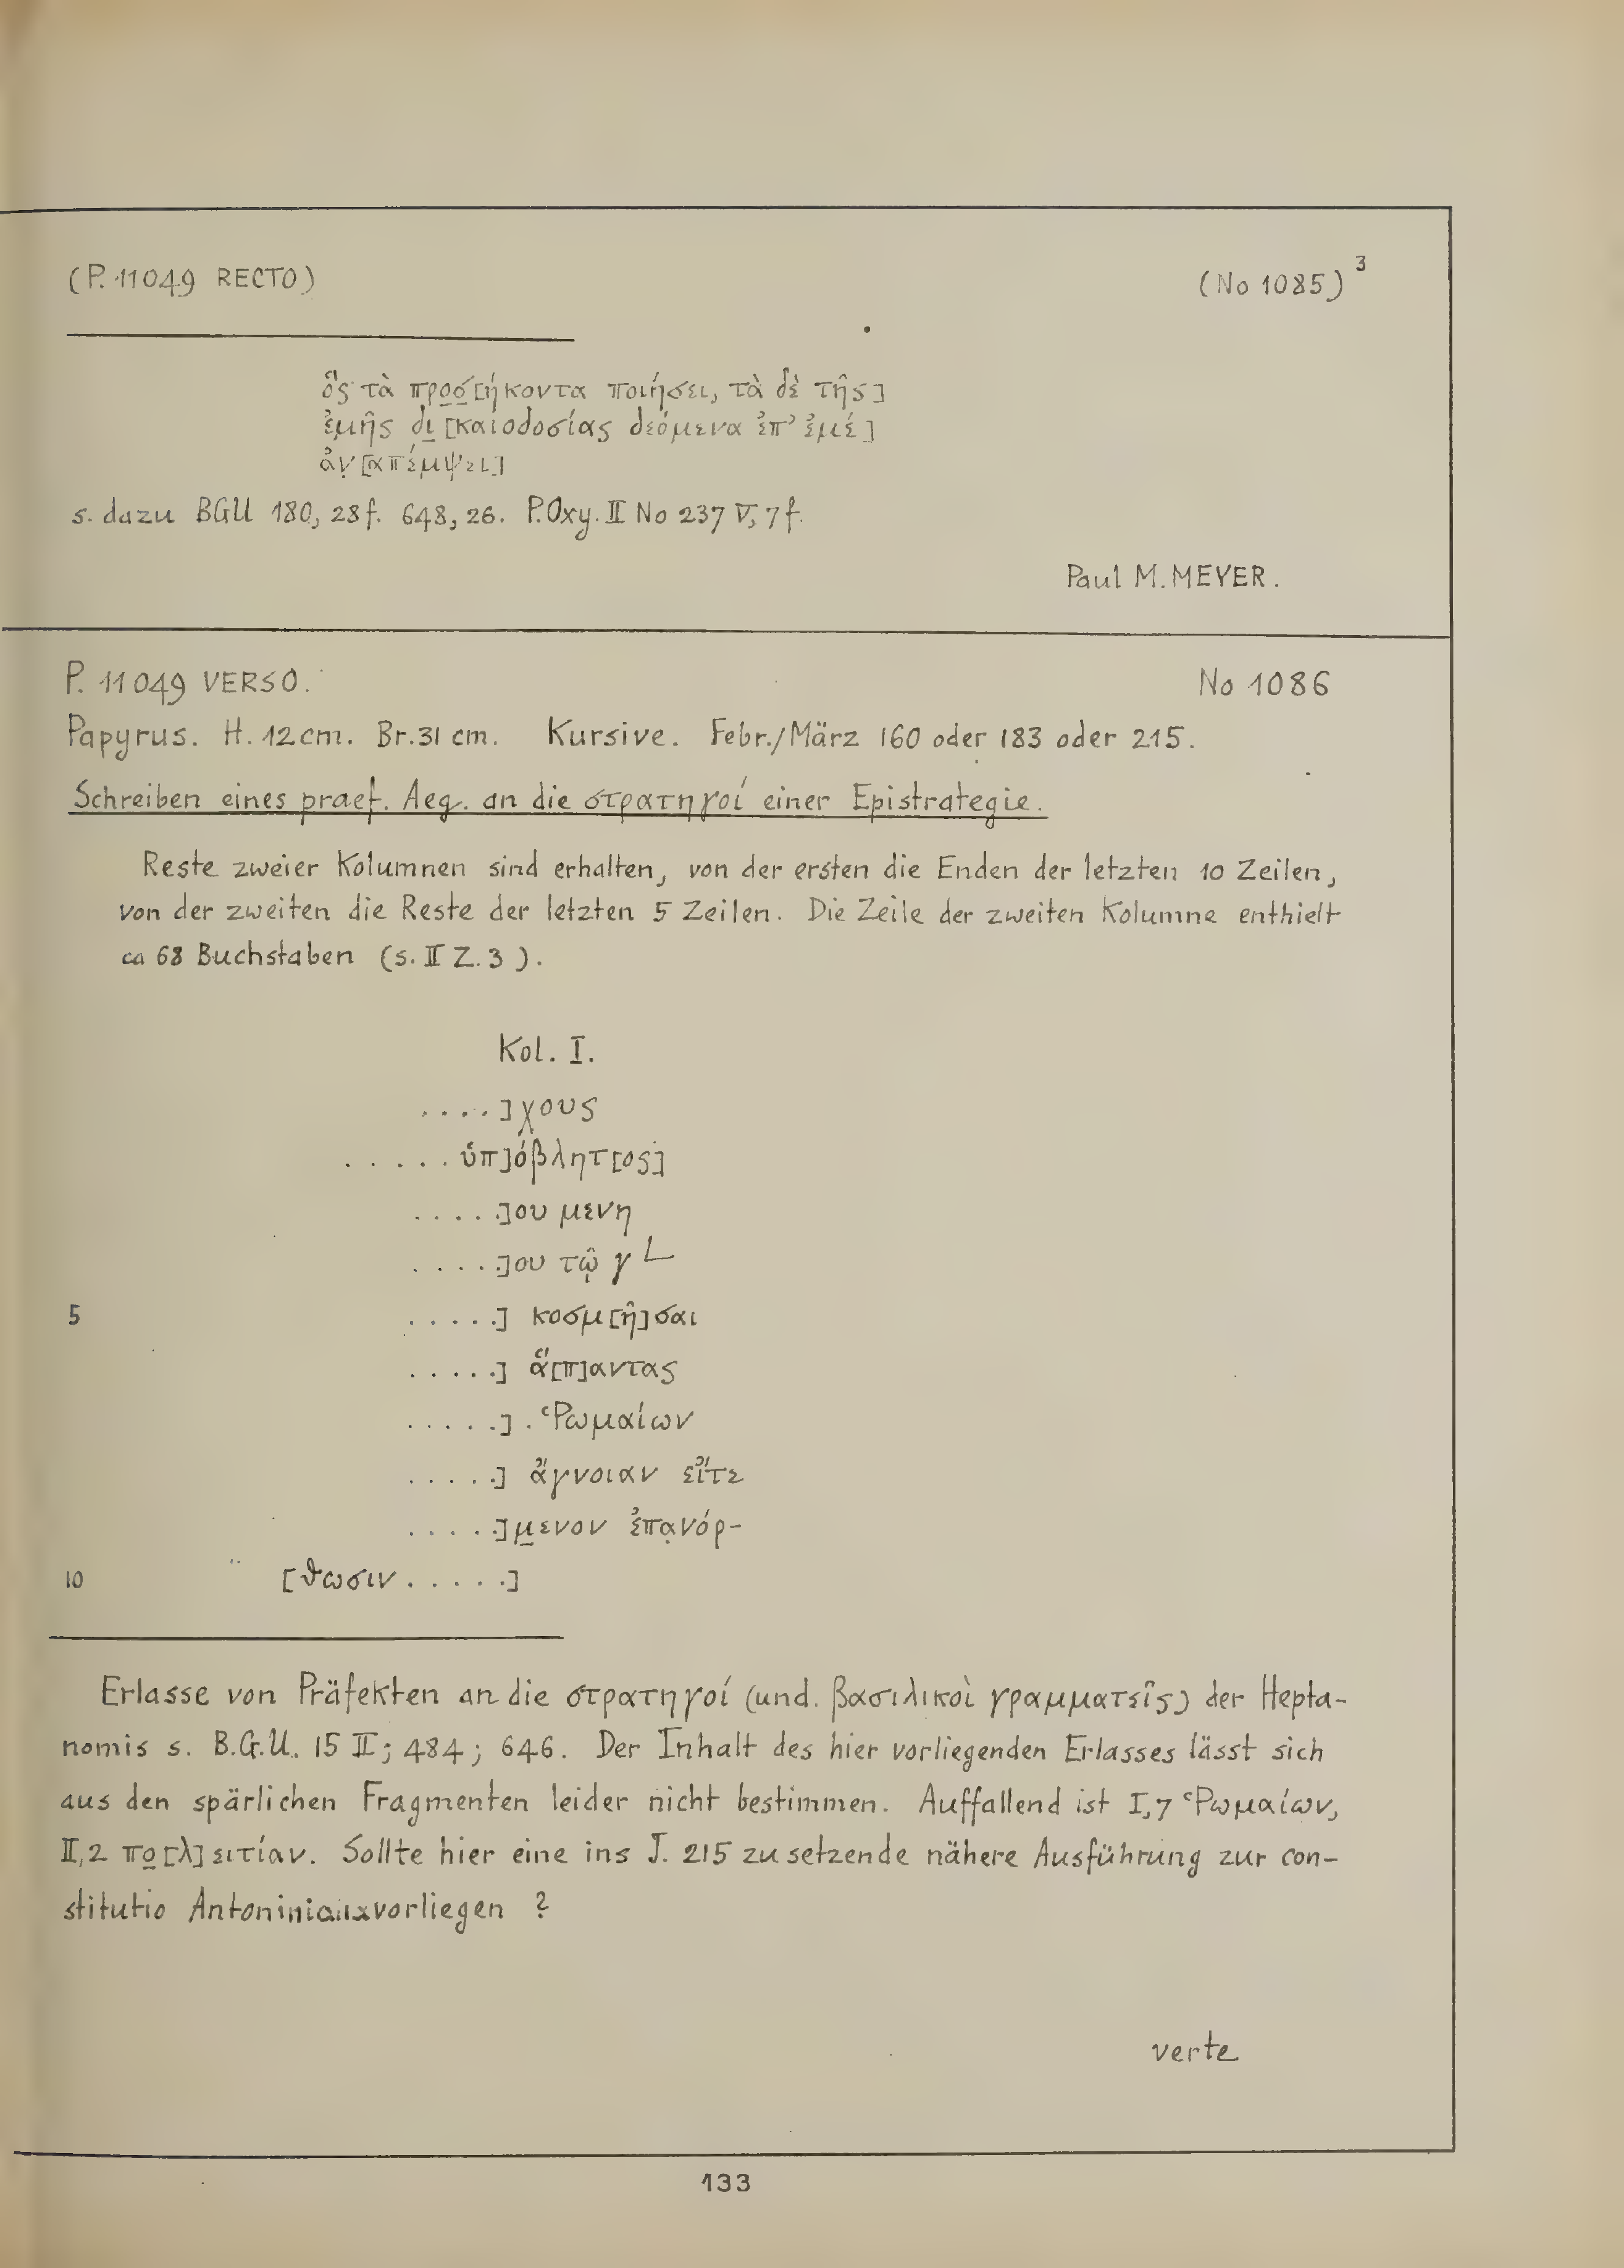 (P. 11049 RECTO) (No 1085) 3
ὃς τὰ προσ[ήκοντα ποιήσει, τὰ δὲ τῆς]
ἐμῆς δι[καιοδοσίας δεόμενα ἐπ' ἐμέ]
ἀν[απέμψει]
s. dazu BGU 180, 28f. 648, 26. P.Oxy. II No 237 V, 7f.
Paul M. MEYER.
P. 11049 VERSO. No 1086
Papyrus. H. 12cm. Br. 31 cm. Kursive. Febr./März 160 oder 183 oder 215.
Schreiben eines praef. Aeg. an die στρατηγοί einer Epistrategie.
Reste zweier Kolumnen sind erhalten, von der ersten die Enden der letzten 10 Zeilen,
von der zweiten die Reste der letzten 5 Zeilen. Die Zeile der zweiten Kolumne enthielt
ca 68 Buchstaben (s. II Z. 3).
Kol. I.
. . . . .]χους
. . . . . ὑπ]όβλητ[ος]
. . . . .]ου μενη
. . . . .]ου τῷ γ L
5 . . . . .] κοσμ[ῆ]σαι
. . . . .] ἅ[π]αντας
. . . . .] . Ῥωμαίων
. . . . .] ἄγνοιαν εἴτε
. . . . .]μενον ἐπανόρ-
10 [θωσιν . . . . .]
Erlasse von Präfekten an die στρατηγοί (und. βασιλικοὶ γραμματεῖς) der Hepta-
nomis s. B.G.U. 15 II; 484; 646. Der Inhalt des hier vorliegenden Erlasses lässt sich
aus den spärlichen Fragmenten leider nicht bestimmen. Auffallend ist I, 7 Ῥωμαίων,
II, 2 πο[λ]ειτίαν. Sollte hier eine ins J. 215 zu setzende nähere Ausführung zur con-
stitutio Antoniniana vorliegen ?
verte
133